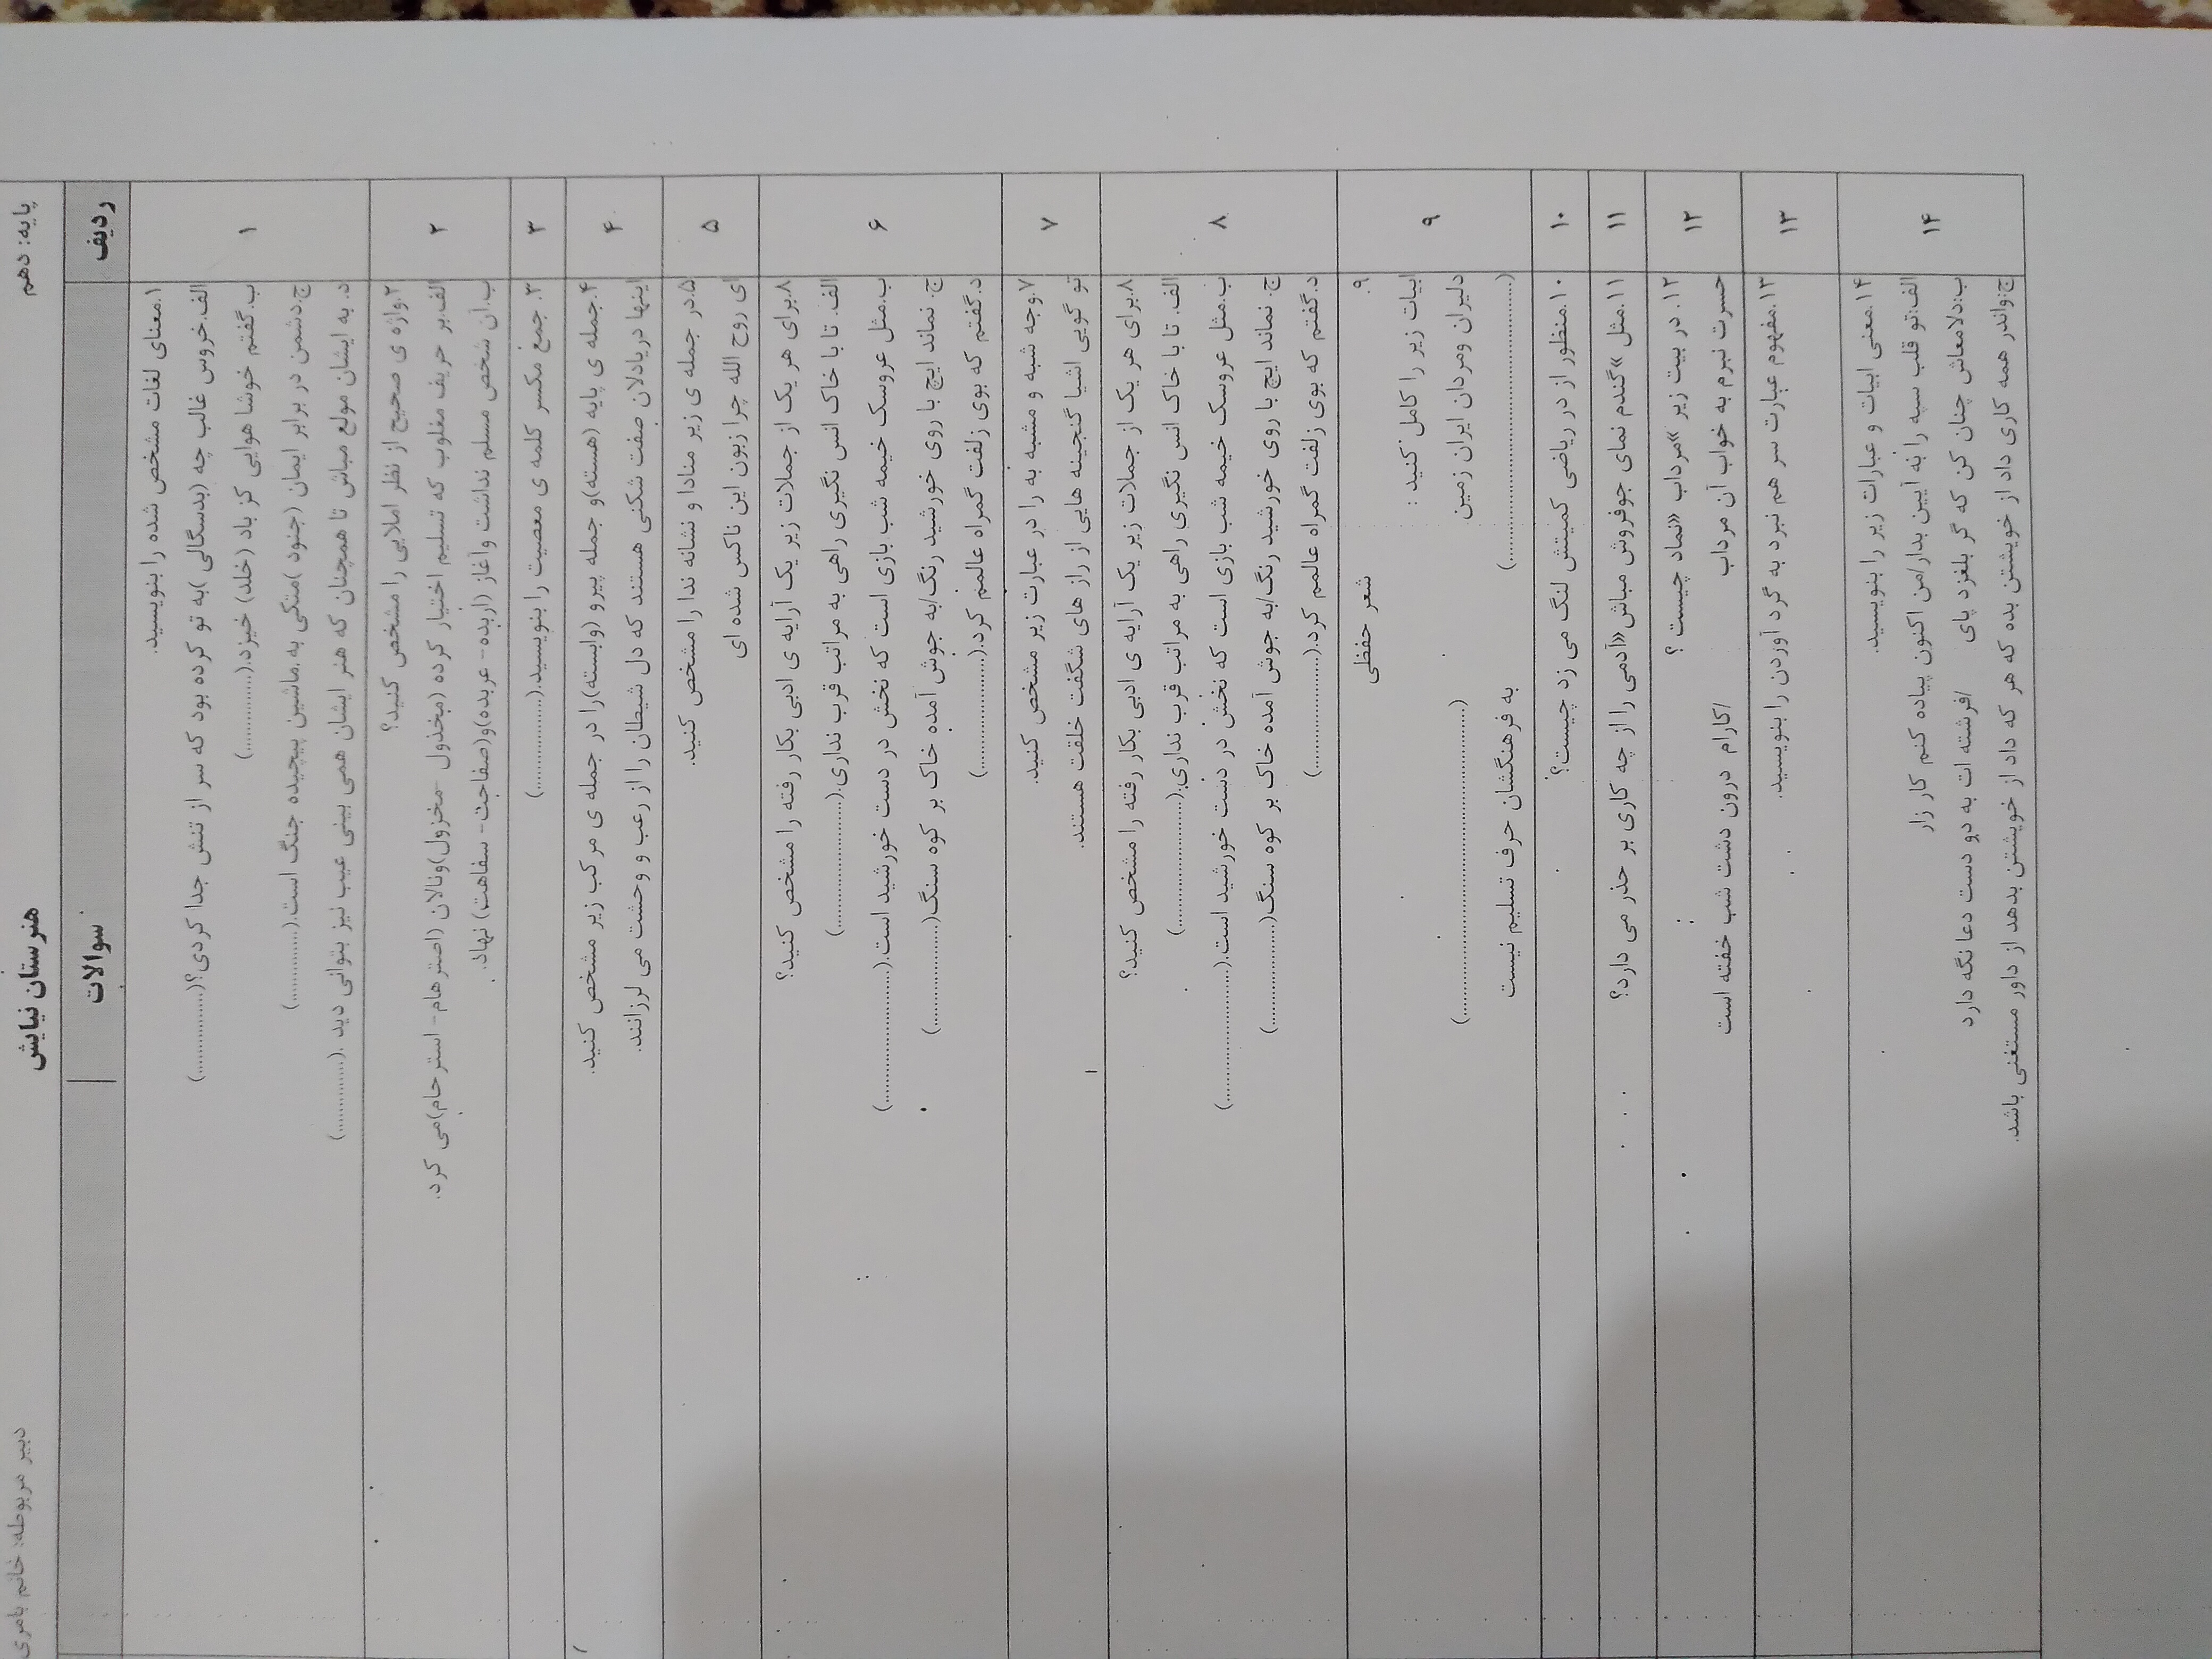 پایه: دهم
هنرستان نیایش
دبیر مربوطه: خانم بامری
ردیف
سوالات
۱
۱.معنای لغات مشخص شده را بنویسید.
الف.خروس غالب چه (بدسگالی )به تو کرده بود که سر از تنش جدا کردی؟(................)
ب.گفتم خوشا هوایی کز باد (خلد) خیزد.(...............)
ج.دشمن در برابر ایمان (جنود )متکی به ماشین پیچیده جنگ است.(..............)
د. به ایشان مولع مباش تا همچنان که هنر ایشان همی بینی عیب نیز بتوانی دید .(..............)
۲
۲.واژه ی صحیح از نظر املایی را مشخص کنید؟
الف.بر حریف مغلوب که تسلیم اختیار کرده (مخذول -مخزول)ونالان (اصترهام- استرحام)می کرد.
ب.آن شخص مسلم نداشت وآغاز (اربده- عربده)و(صفاحت- سفاهت) نهاد.
۳
۳. جمع مکسر کلمه ی معصیت را بنویسید.(..................)
۴
۴.جمله ی پایه (هسته)و جمله پیرو (وابسته)را در جمله ی مرکب زیر مشخص کنید.
اینها دریادلان صفت شکنی هستند که دل شیطان را از رعب و وحشت می لرزانند.
۵
۵.در جمله ی زیر منادا و نشانه ندا را مشخص کنید.
ای روح الله چرا زبون این ناکس شده ای
۶
۸.برای هر یک از جملات زیر یک آرایه ی ادبی بکار رفته را مشخص کنید؟
الف. تا با خاک انس نگیری راهی به مراتب قرب نداری.(.........................)
ب.مثل عروسک خیمه شب بازی است که نخش در دست خورشید است.(..........................)
ج. نماند ایچ با روی خورشید رنگ/به جوش آمده خاک بر کوه سنگ(....................)
د.گفتم که بوی زلفت گمراه عالمم کرد.(......................)
۷
۷.وجه شبه و مشبه به را در عبارت زیر مشخص کنید.
تو گویی اشیا گنجینه هایی از راز های شگفت خلقت هستند.
۸
۸.برای هر یک از جملات زیر یک آرایه ی ادبی بکار رفته را مشخص کنید؟
الف. تا با خاک انس نگیری راهی به مراتب قرب نداری.(.........................)
ب.مثل عروسک خیمه شب بازی است که نخش در دست خورشید است.(..........................)
ج. نماند ایچ با روی خورشید رنگ/به جوش آمده خاک بر کوه سنگ(....................)
د.گفتم که بوی زلفت گمراه عالمم کرد.(......................)
۹
۹. شعر حفظی
ابیات زیر را کامل کنید :
دلیران ومردان ایران زمین (............................................................)
(......................................................) به فرهنگشان حرف تسلیم نیست
۱۰
۱۰.منظور از در ریاضی کمیتش لنگ می زد چیست؟
۱۱
۱۱.مثل »گندم نمای جوفروش مباش«آدمی را از چه کاری بر حذر می دارد؟
۱۲
۱۲. در بیت زیر »مرداب «نماد چیست ؟
حسرت نبرم به خواب آن مرداب /کارام درون دشت شب خفته است
۱۳
۱۳.مفهوم عبارت سر هم نبرد به گرد آوردن را بنویسید.
۱۴
۱۴.معنی ابیات و عبارات زیر را بنویسید.
الف:تو قلب سپه را به آیین بدار/من اکنون پیاده کنم کار زار
ب:دلامعاش چنان کن که گر بلغزد پای /فرشته ات به دو دست دعا نگه دارد
ج:واندر همه کاری داد از خویشتن بده که هر که داد از خویشتن بدهد از داور مستغنی باشد.